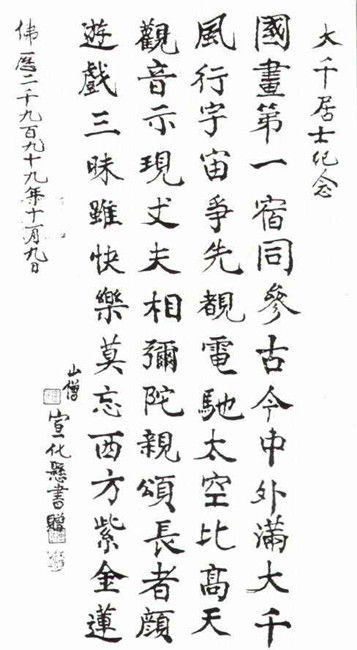 大千居士纪念
國畫第一宿同參古今中外滿大千
風行宇宙爭先覩電馳太空比高天
觀音示現丈夫相彌陀親頌長者顏
遊戲三昧雖快樂莫忘西方紫金蓮
佛曆二千九百九十九年十一月九日
山僧
宣化懸書贈